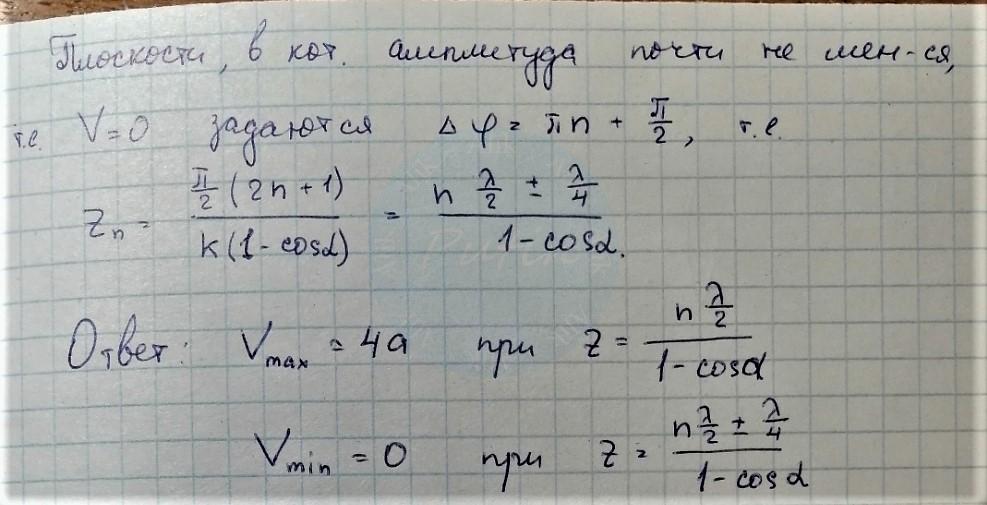 Плоскости, в кот. амплитуда почти не мен-ся,
т.е. V=0 задаются Δφ = πn + π/2, т.е.
Zn = π/2 (2n+1) / k(1-cosα) = n λ/2 ± λ/4 / 1-cosα.
Ответ: Vmax = 4a при Z = n λ/2 / 1-cosα
Vmin = 0 при Z = n λ/2 ± λ/4 / 1-cosα